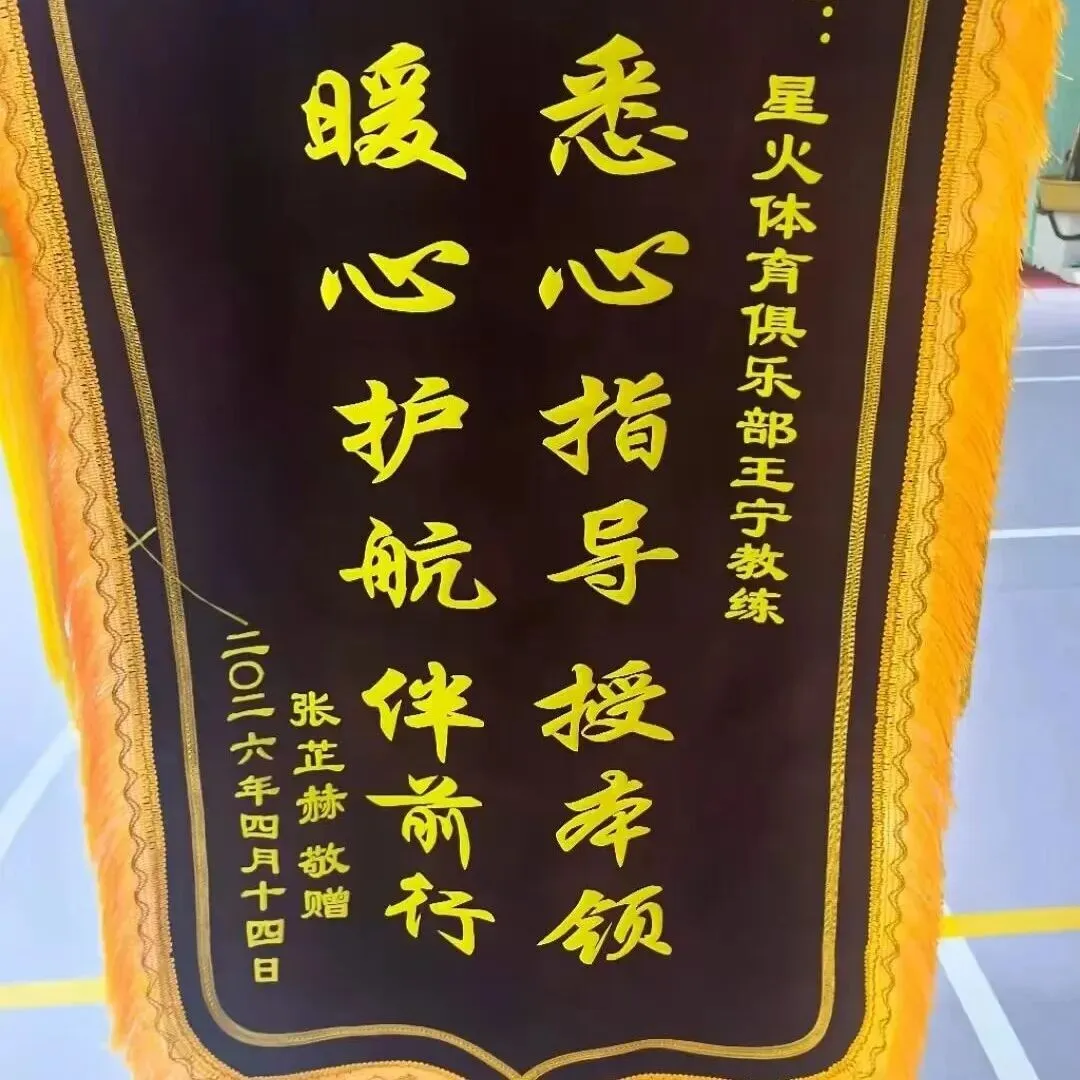 星火体育俱乐部王宁教练
悉心指导授本领
暖心护航伴前行
张芷赫敬赠
二〇二六年四月十四日